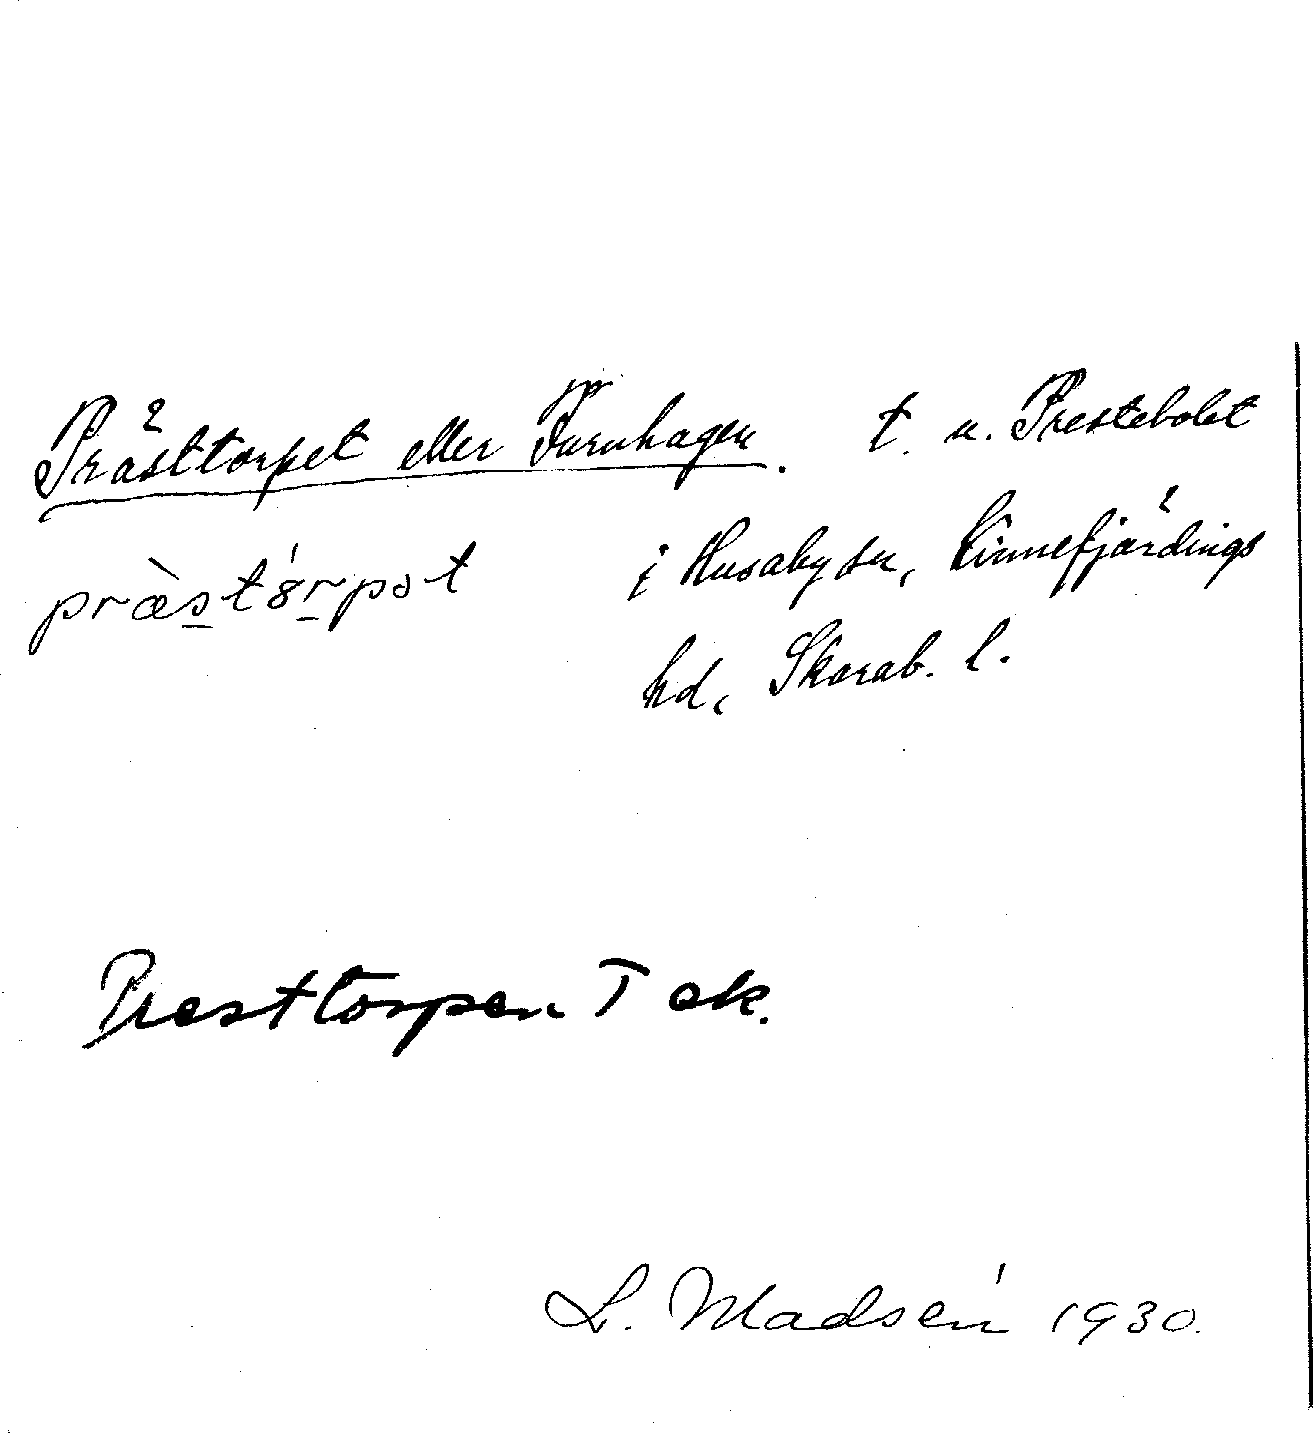 Prästtorpet eller Furuhagen. t. u. Prestebolet
præ̀stó̤rpət
i Husaby sn, Kinnefjärdings
hd, Skarab. l.
Presttorpen T ek.
L. Madsén 1930.